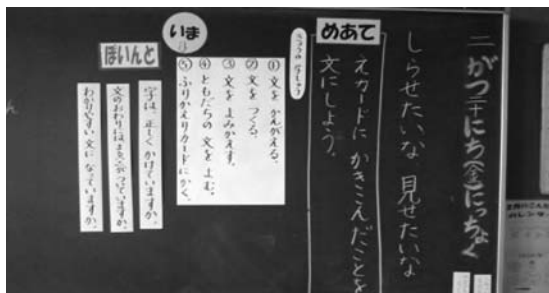 二がつ二十にち(金)にっちょく
しらせたいな 見せたいな
めあて
えカードに かきこんだことを
文にしよう。
いま
① 文を かんがえる。
② 文を つくる。
③ 文を よみかえす。
④ ともだちの 文を よむ。
⑤ ふりかえりカードにかく。
ぽいんと
字は、正しく かけていますか。
文のおわりには「。」がついていますか。
わかりやすい 文に なっていますか。